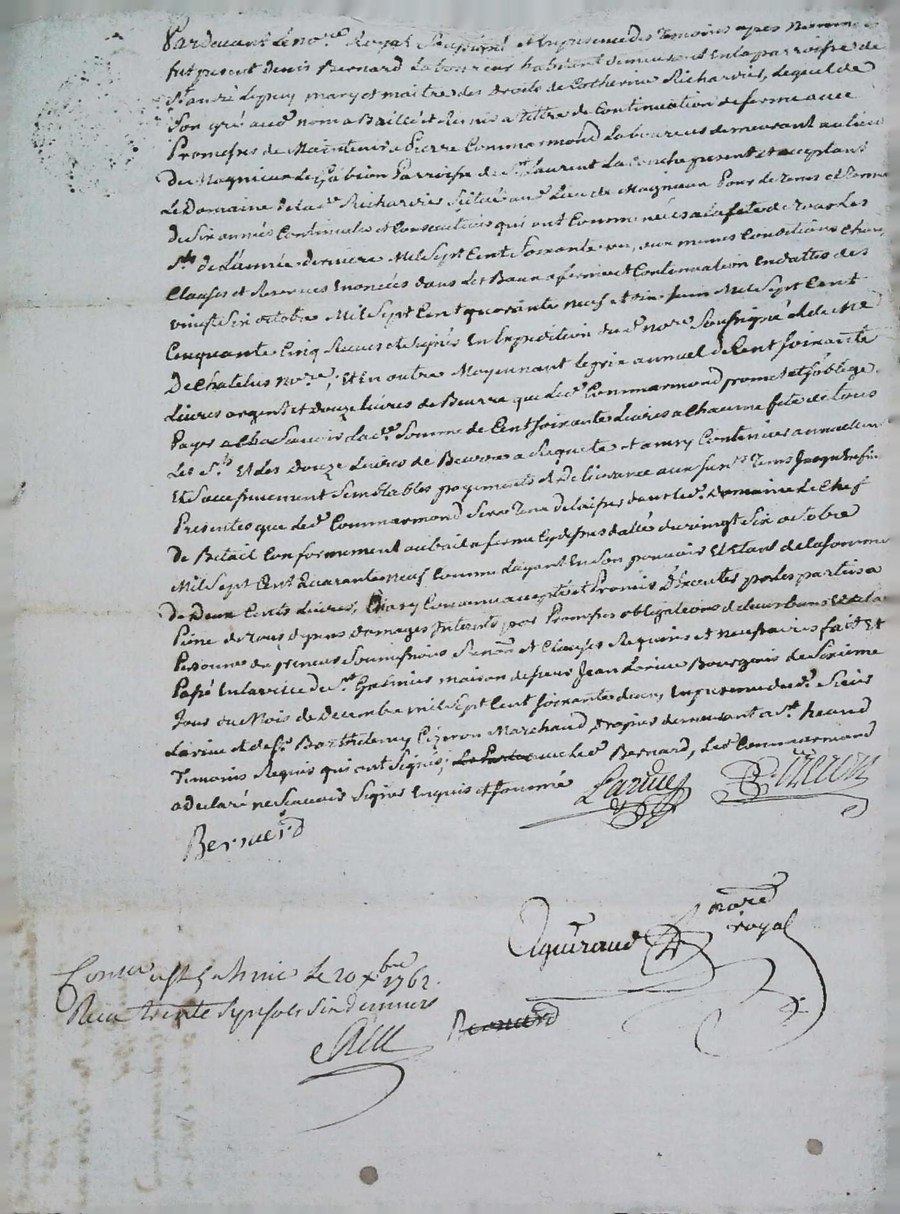 Pardevant le no.re Royal Soussigné et En presence des Temoins apres Nommes
fut present denis Bernard Laboureur habitant demeurant En la parroisse de
St. andré Lepuy mary et maitre des Droits de Catherine Richardis, Lequel de
Son gré aud. nom a Baillé et Remis a titre de Continuation de ferme avec
Promesses de Maintenir a Pierre Commarmond Laboureur demeurant au lieu
De Magnieux Le Gabion Parroisse de St. Laurent La Conche present et acceptant
Le Domaine de lad.e Richardis Situé aud. Lieu de Magnieux Pour Le tems et Terme
de Six années Continuelles et Consecutives qui ont Commencées a la fete de Tous Les
Sts. de L'année derniere Mil Sept Cent Soixante un, aux memes Conditions Charges
Clauses et Reserves Enoncées dans Les Baux a ferme et Continuation En dattes des
vingt Six octobre Mil Sept Cent quarante neuf et Six Juin Mil Sept Cent
Cinquante Cinq Recus et Signés En Expedition du d. no.re Soussigné et de Me
De Chatelus no.re, Et En outre Moyennant le prix annuel de Cent Soixante
Livres argent et Douze Livres de Beurre que led. Commarmond promet et s'oblige
Payer a lba Savoir lad.e Somme de Cent Soixante Livres a Chaume fete de tous
Les Sts. Et Les Douze Livres de Beurre a Requete et ainsy Continuer annuellem.t
Et Successivement Semblables payements et Delivrance aux Susd. Tems Jusqu'a fin
Presentes que Led. Commarmond Sera Tenu delaisser dans led. Domaine Le Chef
De Betail Conformement au bail a ferme Cydessus datté du vingt Six octobre
Mil Sept Cent Quarante Neuf Comme L'ayant En Son pouvoir Et Etant de la Somme
De Deux Cents Livres, Et ainsy Convenu accepté et Promis D'Executer par les parties a
Peine de tous depens Domages Interets par Promesses obligations de leurs biens Et de la
Personne du preneur Soumissions Renon.ns et Clauses Requises et necessaires fait Et
Passé En la ville de St. Galmier maison de Sieur Jean Larive Bourgeois Le Sixieme
Jour du Mois de Decembre mil Sept Cent Soixante deux, En presence dud. Sieur
Larive et de Sr. Barthelemy Cizeron Marchand Drapier demeurant a St. heand
Temoins Requis qui ont Signés, avec led. Bernard, Led. Commarmond
a declaré ne Scavoir Signer Enquis et Sommé
Larive Cizeron
Bernard
Aguiraud nore
royal
Con le 20 xbre 1762.
Recu trente Sept Sols Six deniers
Bernard